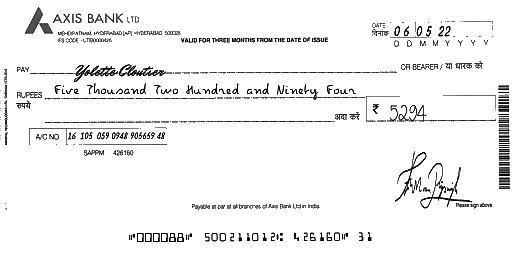 AXIS BANK LTD
MEHDIPATNAM, HYDERABAD [AP] HYDERABAD 500028
IFS CODE - UTIB0000426
VALID FOR THREE MONTHS FROM THE DATE OF ISSUE
DATE
दिनांक 06 05 22
D D M M Y Y Y Y
PAY Yolette Cloutier OR BEARER / या धारक को
RUPEES Five Thousand Two Hundred and Ninety Four
रुपये अदा करें ₹ 5294
A/C NO 16 105 059 0948 905659 48
SAPPM 426160
Payable at par at all branches of Axis Bank Ltd in India.
Please sign above
"000088" 500211012: 426160" 31